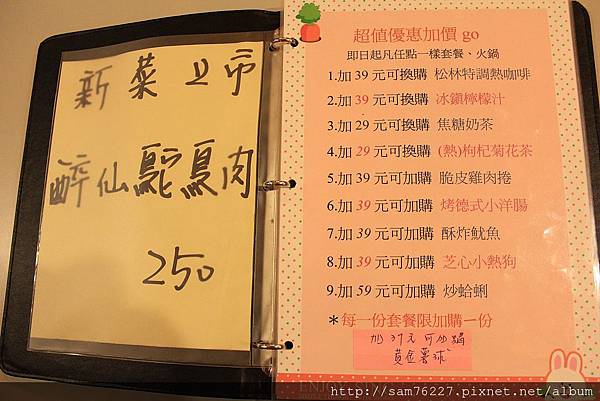 新菜上市
醉仙鴕鳥肉
250
超值優惠加價 go
即日起凡任點一樣套餐、火鍋
1.加 39 元可換購 松林特調熱咖啡
2.加 39 元可換購 冰鎮檸檬汁
3.加 29 元可換購 焦糖奶茶
4.加 29 元可換購 (熱)枸杞菊花茶
5.加 39 元可加購 脆皮雞肉捲
6.加 39 元可加購 烤德式小洋腸
7.加 39 元可加購 酥炸魷魚
8.加 39 元可加購 芝心小熱狗
9.加 59 元可加購 炒蛤蜊
＊每一份套餐限加購一份
加 39元 可加購
黃金薯球
http://sam76227.pixnet.net/album